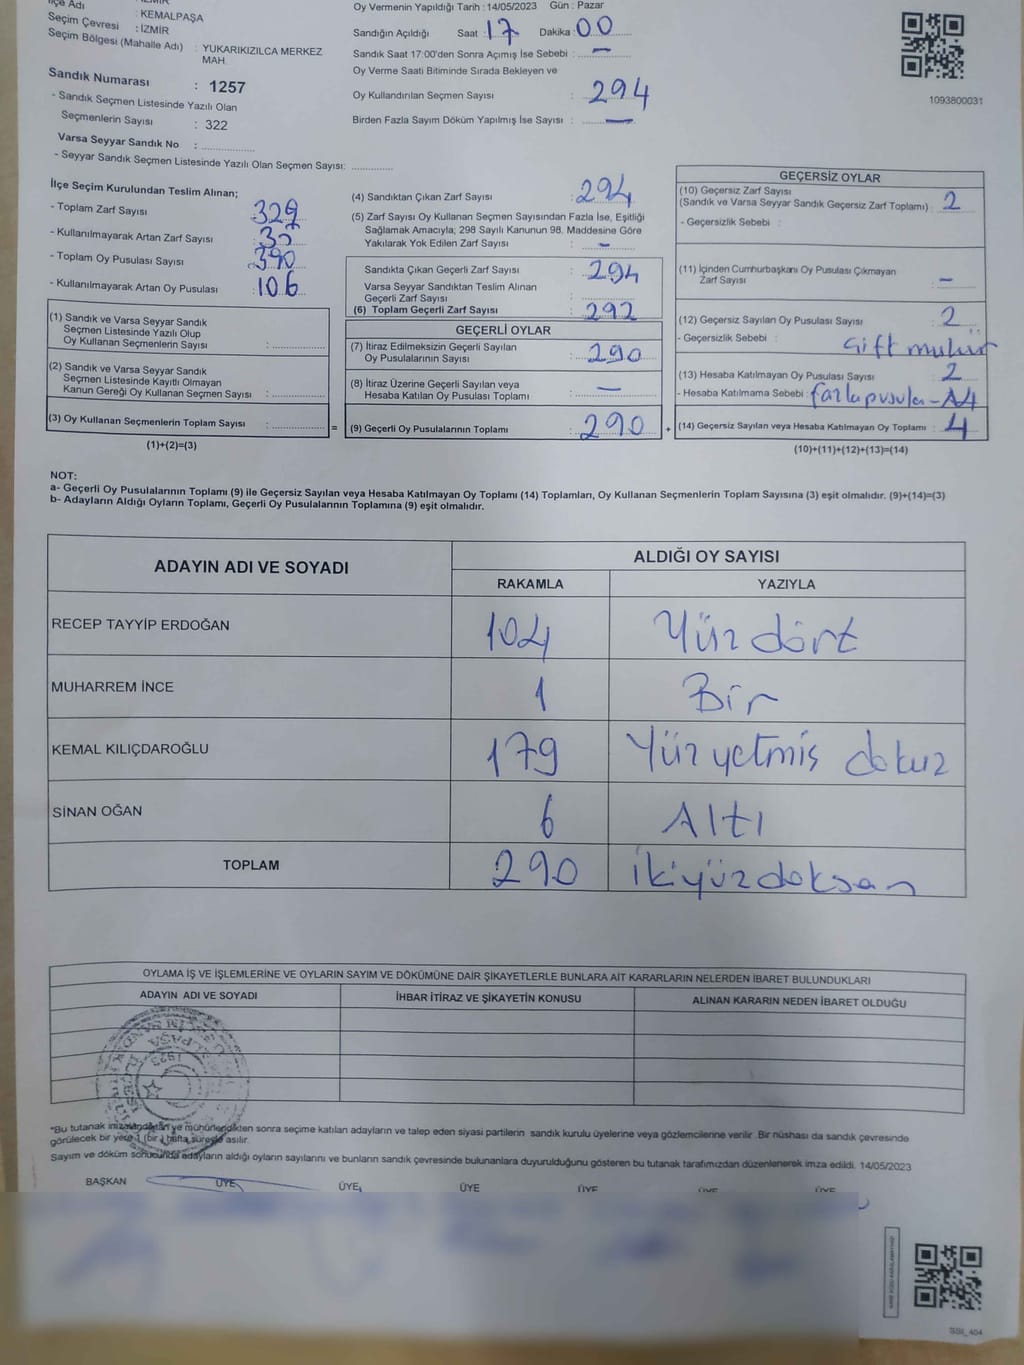 İlçe Adı
: KEMALPAŞA
Seçim Çevresi : İZMİR
Seçim Bölgesi (Mahalle Adı) : YUKARIKIZILCA MERKEZ MAH.
Sandık Numarası : 1257
- Sandık Seçmen Listesinde Yazılı Olan
Seçmenlerin Sayısı : 322
Varsa Seyyar Sandık No :
- Seyyar Sandık Seçmen Listesinde Yazılı Olan Seçmen Sayısı:
Oy Vermenin Yapıldığı Tarih : 14/05/2023 Gün : Pazar
Sandığın Açıldığı Saat : 17 Dakika : 00
Sandık Saat 17:00'den Sonra Açımış İse Sebebi : —
Oy Verme Saati Bitiminde Sırada Bekleyen ve
Oy Kullandırılan Seçmen Sayısı : 294
Birden Fazla Sayım Döküm Yapılmış İse Sayısı : —
1093800031
İlçe Seçim Kurulundan Teslim Alınan;
- Toplam Zarf Sayısı
- Kullanılmayarak Artan Zarf Sayısı
- Toplam Oy Pusulası Sayısı : 390
- Kullanılmayarak Artan Oy Pusulası : 106
(1) Sandık ve Varsa Seyyar Sandık
Seçmen Listesinde Yazılı Olup
Oy Kullanan Seçmenlerin Sayısı :
(2) Sandık ve Varsa Seyyar Sandık
Seçmen Listesinde Kayıtlı Olmayan
Kanun Gereği Oy Kullanan Seçmen Sayısı :
(3) Oy Kullanan Seçmenlerin Toplam Sayısı : =
(1)+(2)=(3)
(4) Sandıktan Çıkan Zarf Sayısı : 294
(5) Zarf Sayısı Oy Kullanan Seçmen Sayısından Fazla İse, Eşitliği
Sağlamak Amacıyla; 298 Sayılı Kanunun 98. Maddesine Göre
Yakılarak Yok Edilen Zarf Sayısı : —
Sandıkta Çıkan Geçerli Zarf Sayısı : 294
Varsa Seyyar Sandıktan Teslim Alınan
Geçerli Zarf Sayısı :
(6) Toplam Geçerli Zarf Sayısı : 292
GEÇERLİ OYLAR
(7) İtiraz Edilmeksizin Geçerli Sayılan
Oy Pusulalarının Sayısı : 290
(8) İtiraz Üzerine Geçerli Sayılan veya
Hesaba Katılan Oy Pusulası Toplamı : —
(9) Geçerli Oy Pusulalarının Toplamı : 290 +
GEÇERSİZ OYLAR
(10) Geçersiz Zarf Sayısı
(Sandık ve Varsa Seyyar Sandık Geçersiz Zarf Toplamı) : 2
- Geçersizlik Sebebi :
(11) İçinden Cumhurbaşkanı Oy Pusulası Çıkmayan
Zarf Sayısı : —
(12) Geçersiz Sayılan Oy Pusulası Sayısı : 2
- Geçersizlik Sebebi : Çift mühür
(13) Hesaba Katılmayan Oy Pusulası Sayısı : 2
- Hesaba Katılmama Sebebi : fazla pusula - A4
(14) Geçersiz Sayılan veya Hesaba Katılmayan Oy Toplamı : 4
(10)+(11)+(12)+(13)=(14)
NOT:
a- Geçerli Oy Pusulalarının Toplamı (9) ile Geçersiz Sayılan veya Hesaba Katılmayan Oy Toplamı (14) Toplamları, Oy Kullanan Seçmenlerin Toplam Sayısına (3) eşit olmalıdır. (9)+(14)=(3)
b- Adayların Aldığı Oyların Toplamı, Geçerli Oy Pusulalarının Toplamına (9) eşit olmalıdır.
ADAYIN ADI VE SOYADI ALDIĞI OY SAYISI
RAKAMLA YAZIYLA
RECEP TAYYİP ERDOĞAN 104 Yüz dört
MUHARREM İNCE 1 Bir
KEMAL KILIÇDAROĞLU 179 Yüz yetmiş dokuz
SİNAN OĞAN 6 Altı
TOPLAM 290 ikiyüzdoksan
OYLAMA İŞ VE İŞLEMLERİNE VE OYLARIN SAYIM VE DÖKÜMÜNE DAİR ŞİKAYETLERLE BUNLARA AİT KARARLARIN NELERDEN İBARET BULUNDUKLARI
ADAYIN ADI VE SOYADI İHBAR İTİRAZ VE ŞİKAYETİN KONUSU ALINAN KARARIN NEDEN İBARET OLDUĞU
*Bu tutanak imzalandıktan ve mühürlendikten sonra seçime katılan adayların ve talep eden siyasi partilerin sandık kurulu üyelerine veya gözlemcilerine verilir. Bir nüshası da sandık çevresinde
görülecek bir yere 1 (bir ) hafta süreyle asılır.
Sayım ve döküm sonucunda adayların aldığı oyların sayılarını ve bunların sandık çevresinde bulunanlara duyurulduğunu gösteren bu tutanak tarafımızdan düzenlenerek imza edildi. 14/05/2023
BAŞKAN ÜYE ÜYE ÜYE ÜYE ÜYE ÜYE
SSI_404